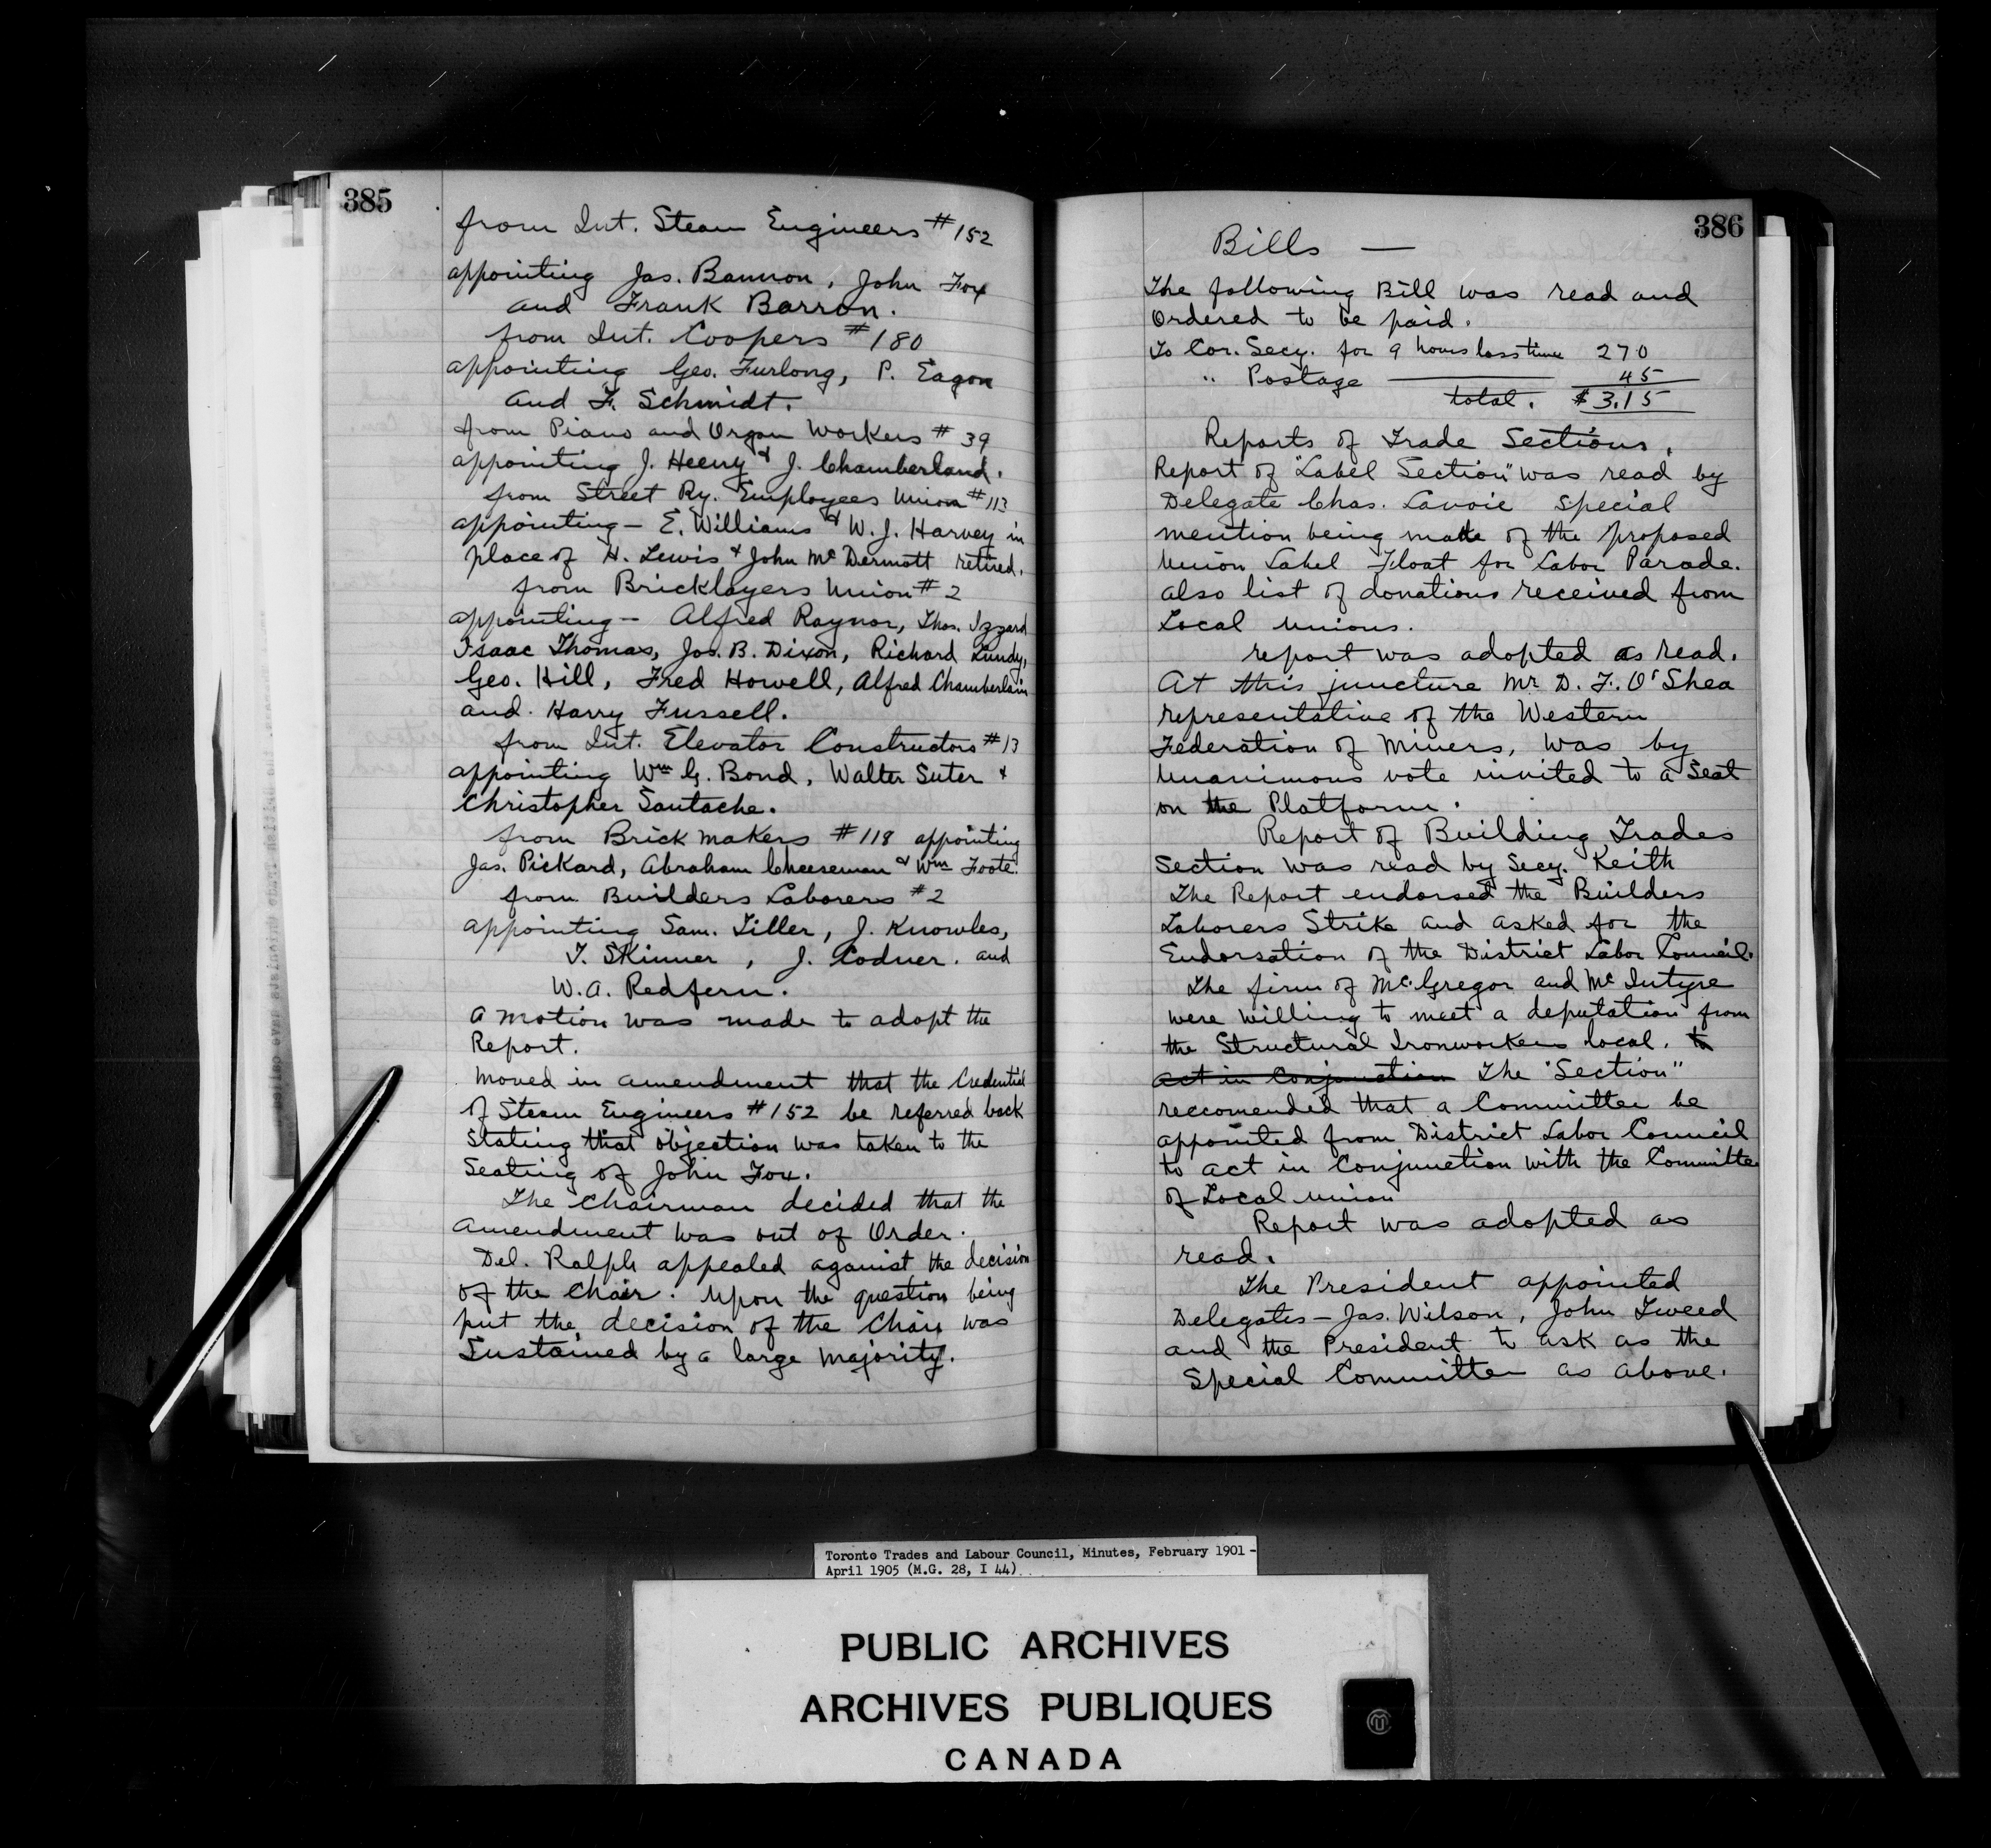 385
from Int. Steam Engineers #152
appointing Jas. Bannon, John Fox
and Frank Barron.
from Int. Coopers #180
appointing Geo. Furlong, P. Eagon
and F. Schmidt.
from Piano and Organ Workers #39
appointing J. Heeny & J. Chamberland.
from Street Ry. Employees Union #113
appointing – E. Williams & W. J. Harvey in
place of H. Lewis & John McDermott retired.
from Bricklayers Union #2
appointing – Alfred Raynor, Thos. Izzard
Isaac Thomas, Jos. B. Dixon, Richard Lundy,
Geo. Hill, Fred Howell, Alfred Chamberlain
and Harry Fussell.
from Int. Elevator Constructors #13
appointing Wm G. Bond, Walter Suter &
Christopher Santache.
from Brick makers #118 appointing
Jas. Pickard, Abraham Cheeseman & Wm Foote.
from Builders Laborers #2
appointing Sam. Tiller, J. Knowles,
T. Skinner, J. Codner. and
W. A. Redfern.
A motion was made to adopt the
Report.
Moved in amendment that the Credential
of Steam Engineers #152 be referred back
Stating that objection was taken to the
Seating of John Fox.
The Chairman decided that the
Amendment was out of Order.
Del. Ralph appealed against the decision
of the Chair. Upon the question being
put the decision of the Chair was
Sustained by a large Majority.
386
Bills —
The following Bill was read and
Ordered to be paid.
To Cor. Secy. for 9 hours loss time 270
" Postage 45
total. $3.15
Reports of Trade Sections.
Report of "Label Section" was read by
Delegate Chas. Lavoie Special
mention being made of the proposed
Union Label Float for Labor Parade.
also list of donations received from
Local Unions.
report was adopted as read.
At this juncture Mr D. F. O'Shea
representative of the Western
Federation of Miners, was by
Unanimous vote invited to a Seat
on the Platform.
Report of Building Trades
Section was read by Secy. Keith
The Report endorsed the Builders
Laborers Strike and asked for the
Endorsation of the District Labor Council.
The firm of McGregor and McIntyre
were willing to meet a deputation from
the Structural Ironworkers local. to
act in Conjunction The "Section"
reccomended that a Committee be
appointed from District Labor Council
to act in Conjunction with the Committee
of Local Union
Report was adopted as
read.
The President appointed
Delegates – Jas. Wilson, John Tweed
and the President to ask as the
Special Committee as above.
Toronto Trades and Labour Council, Minutes, February 1901 -
April 1905 (M.G. 28, I 44)
PUBLIC ARCHIVES
ARCHIVES PUBLIQUES
CANADA